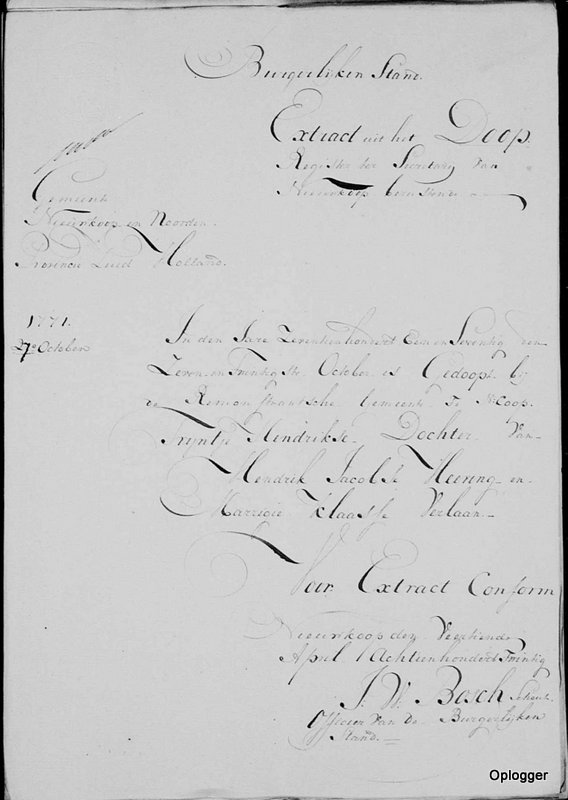 Burgerlijken Stand.
Extract uit het Doop
Register ter Secretary van
Nieuwkoop berustende
Gemeente
Nieuwkoop en Noorden.
Provincie Zuid Holland.
1771.
27e October
In den Jare Zevenhenhonderdt Een en Seventig den
Zeven en Twintigste October is Gedoopt by
de Remonstrantsche Gemeente te N:Coop
Tryntje Hendrikse Dochter Van
Hendrik Jacobse Heering en
Marrigie Klaasse Verlaan
Voor Extract Conform
Nieuwkoop den Veertiende
April 1 Achtienhonderdt Twintig
J. W. Bosch Schout
Officier Van de Burgerlyken
Stand.
Oplogger